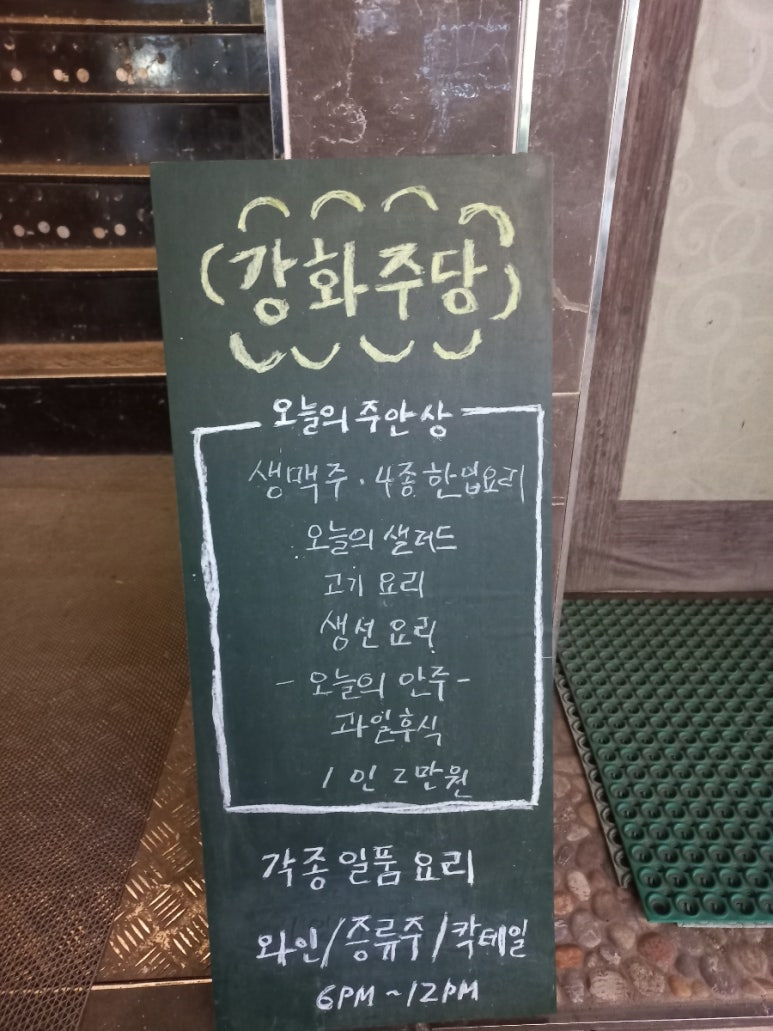 (강화주당)
오늘의 주안상
생맥주·4종한입요리
오늘의 샐러드
고기 요리
생선 요리
- 오늘의 안주 -
과일후식
1인 2만원
각종 일품 요리
와인/증류주/칵테일
6PM ~ 12PM